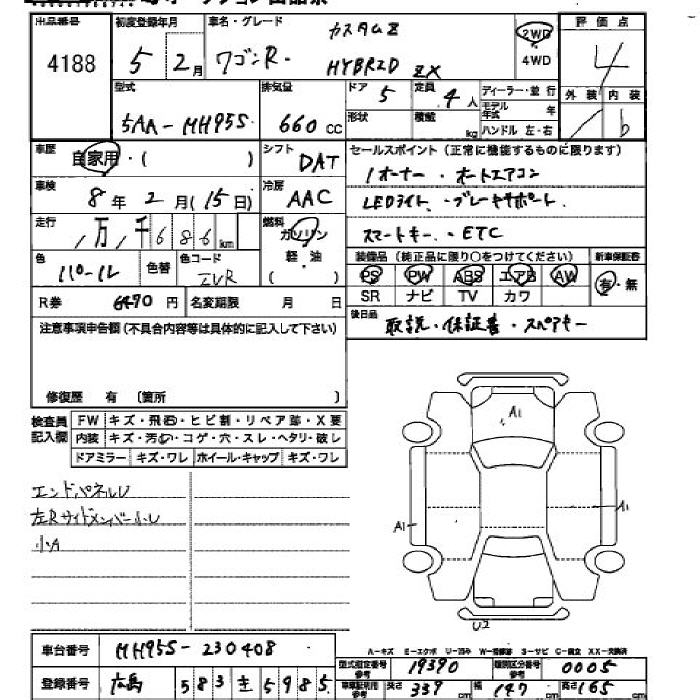 出品番号 初度登録年月 車名・グレード カスタムZ 2WD 評価点
4188 5 2月 ワゴンR HYBRID ZX 4WD 4
型式 排気量 ドア 5 定員 4人 ディーラー・並行 外装 内装
5AA-MH95S 660cc 形状 積載 kg モデル年式 年 b
ハンドル 左・右
車歴 自家用・( ) シフト DAT セールスポイント(正常に機能するものに限ります)
車検 8年2月(15日) 冷房 AAC 1オーナー・オートエアコン
LEDライト・ブレーキサポート
走行 1万1千686km 燃料 ガソリン スマートキー・ETC
色 パール 色替 色コード ZVR 軽・油 ( ) 装備品(純正品に限り○をつけてください) 新車保証書
PS PW ABS エアB AW 有・無
R券 6470円 名変期限 月 日 SR ナビ TV カワ
注意事項申告欄(不具合内容等は具体的に記入して下さい) 後日品 取説・保証書・スペアキー
修復歴 有 〔箇所 〕
検査員記入欄 FW キズ・飛石・ヒビ割・リペア跡・X要
内装 キズ・汚れ・コゲ・穴・スレ・ヘタリ・破レ
ドアミラー キズ・ワレ ホイール・キャップ キズ・ワレ
A1
エンドパネルU
左Rサイドメンバー小U
小A
A1 A1
U2
A-キズ E-エクボ U-凹み W-補修跡 S-サビ C-腐食 XX-交換済
車台番号 MH95S-230408 型式指定番号 参考 19390 類別区分番号 参考 0005
登録番号 広島 583 5985 車庫証明用 参考 長さ 339cm 幅 147cm 高さ 165cm